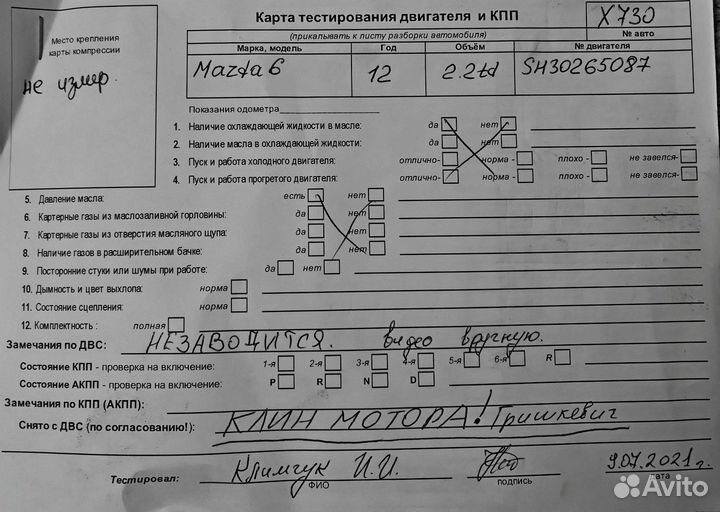 Место крепления карты компрессии
не измер.
Карта тестирования двигателя и КПП
(прикалывать к листу разборки автомобиля)
X730
№ авто
Марка, модель Год Объём № двигателя
Mazda 6 12 2.2td SH30265087
Показания одометра
1. Наличие охлаждающей жидкости в масле: да нет
2. Наличие масла в охлаждающей жидкости: да нет
3. Пуск и работа холодного двигателя: отлично- норма - плохо - не завелся-
4. Пуск и работа прогретого двигателя: отлично- норма - плохо - не завелся-
5. Давление масла: есть нет
6. Картерные газы из маслозаливной горловины: да нет
7. Картерные газы из отверстия масляного щупа: да нет
8. Наличие газов в расширительном бачке: да нет
9. Посторонние стуки или шумы при работе: да нет
10. Дымность и цвет выхлопа: норма
11. Состояние сцепления: норма
12. Комплектность : полная
Замечания по ДВС: НЕЗАВОДИТСЯ. видео вручную.
Состояние КПП - проверка на включение: 1-я 2-я 3-я 4-я 5-я 6-я R
Состояние АКПП - проверка на включение: P R N D
Замечания по КПП (АКПП):
Снято с ДВС (по согласованию!): КЛИН МОТОРА! Гришкевич
Тестировал: Климчук И.И. 9.07.2021г.
ФИО подпись дата
Avito